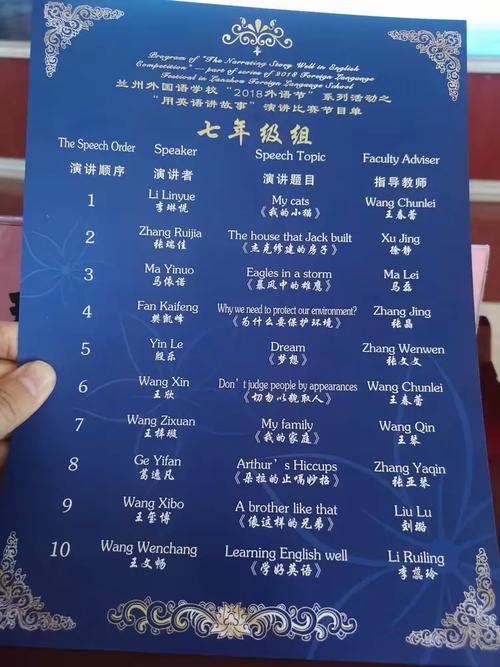 Program of "The Narrating Story Well in English
Competition" — part of series of 2018 Foreign Language
Festival in Lanzhou Foreign Language School
兰州外国语学校“2018外语节”系列活动之
“用英语讲故事”演讲比赛节目单
七年级组
The Speech Order Speaker Speech Topic Faculty Adviser
演讲顺序 演讲者 演讲题目 指导教师
1 Li Linyue My cats Wang Chunlei
李琳悦 《我的小猫》 王春蕾
2 Zhang Ruijia The house that Jack built Xu Jing
张瑞佳 《杰克修建的房子》 徐静
3 Ma Yinuo Eagles in a storm Ma Lei
马依诺 《暴风中的雄鹰》 马磊
4 Fan Kaifeng Why we need to protect our environment? Zhang Jing
樊凯峰 《为什么要保护环境》 张晶
5 Yin Le Dream Zhang Wenwen
殷乐 《梦想》 张文文
6 Wang Xin Don't judge people by appearances Wang Chunlei
王欣 《切勿以貌取人》 王春蕾
7 Wang Zixuan My family Wang Qin
王梓璇 《我的家庭》 王琴
8 Ge Yifan Arthur's Hiccups Zhang Yaqin
葛逸凡 《朵拉的止嗝妙招》 张亚琴
9 Wang Xibo A brother like that Liu Lu
王玺博 《像这样的兄弟》 刘璐
10 Wang Wenchang Learning English well Li Ruiling
王文畅 《学好英语》 李蕊玲